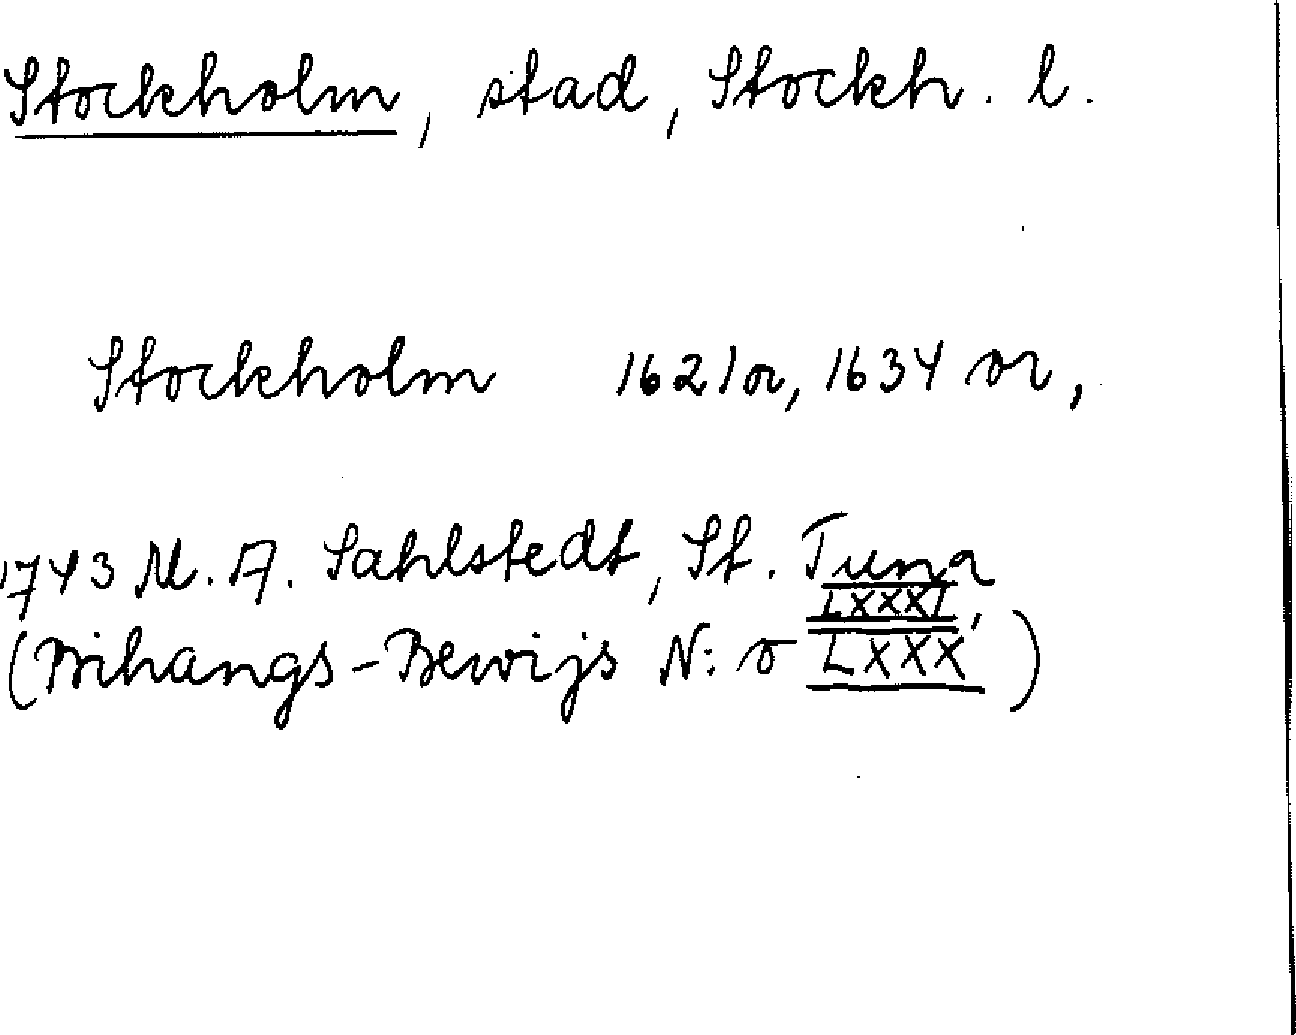 Stockholm, stad, Stockh. l.
Stockholm 1621 or, 1634 or,
1743 M. A. Sahlstedt, St. Tuna
LXXXI,
(Bihangs-Bewijs N:o LXXX)